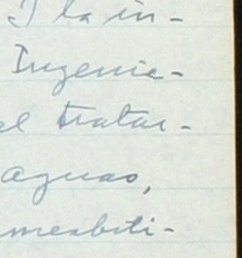 I la in-
Ingenie-
el tratar-
aguas,